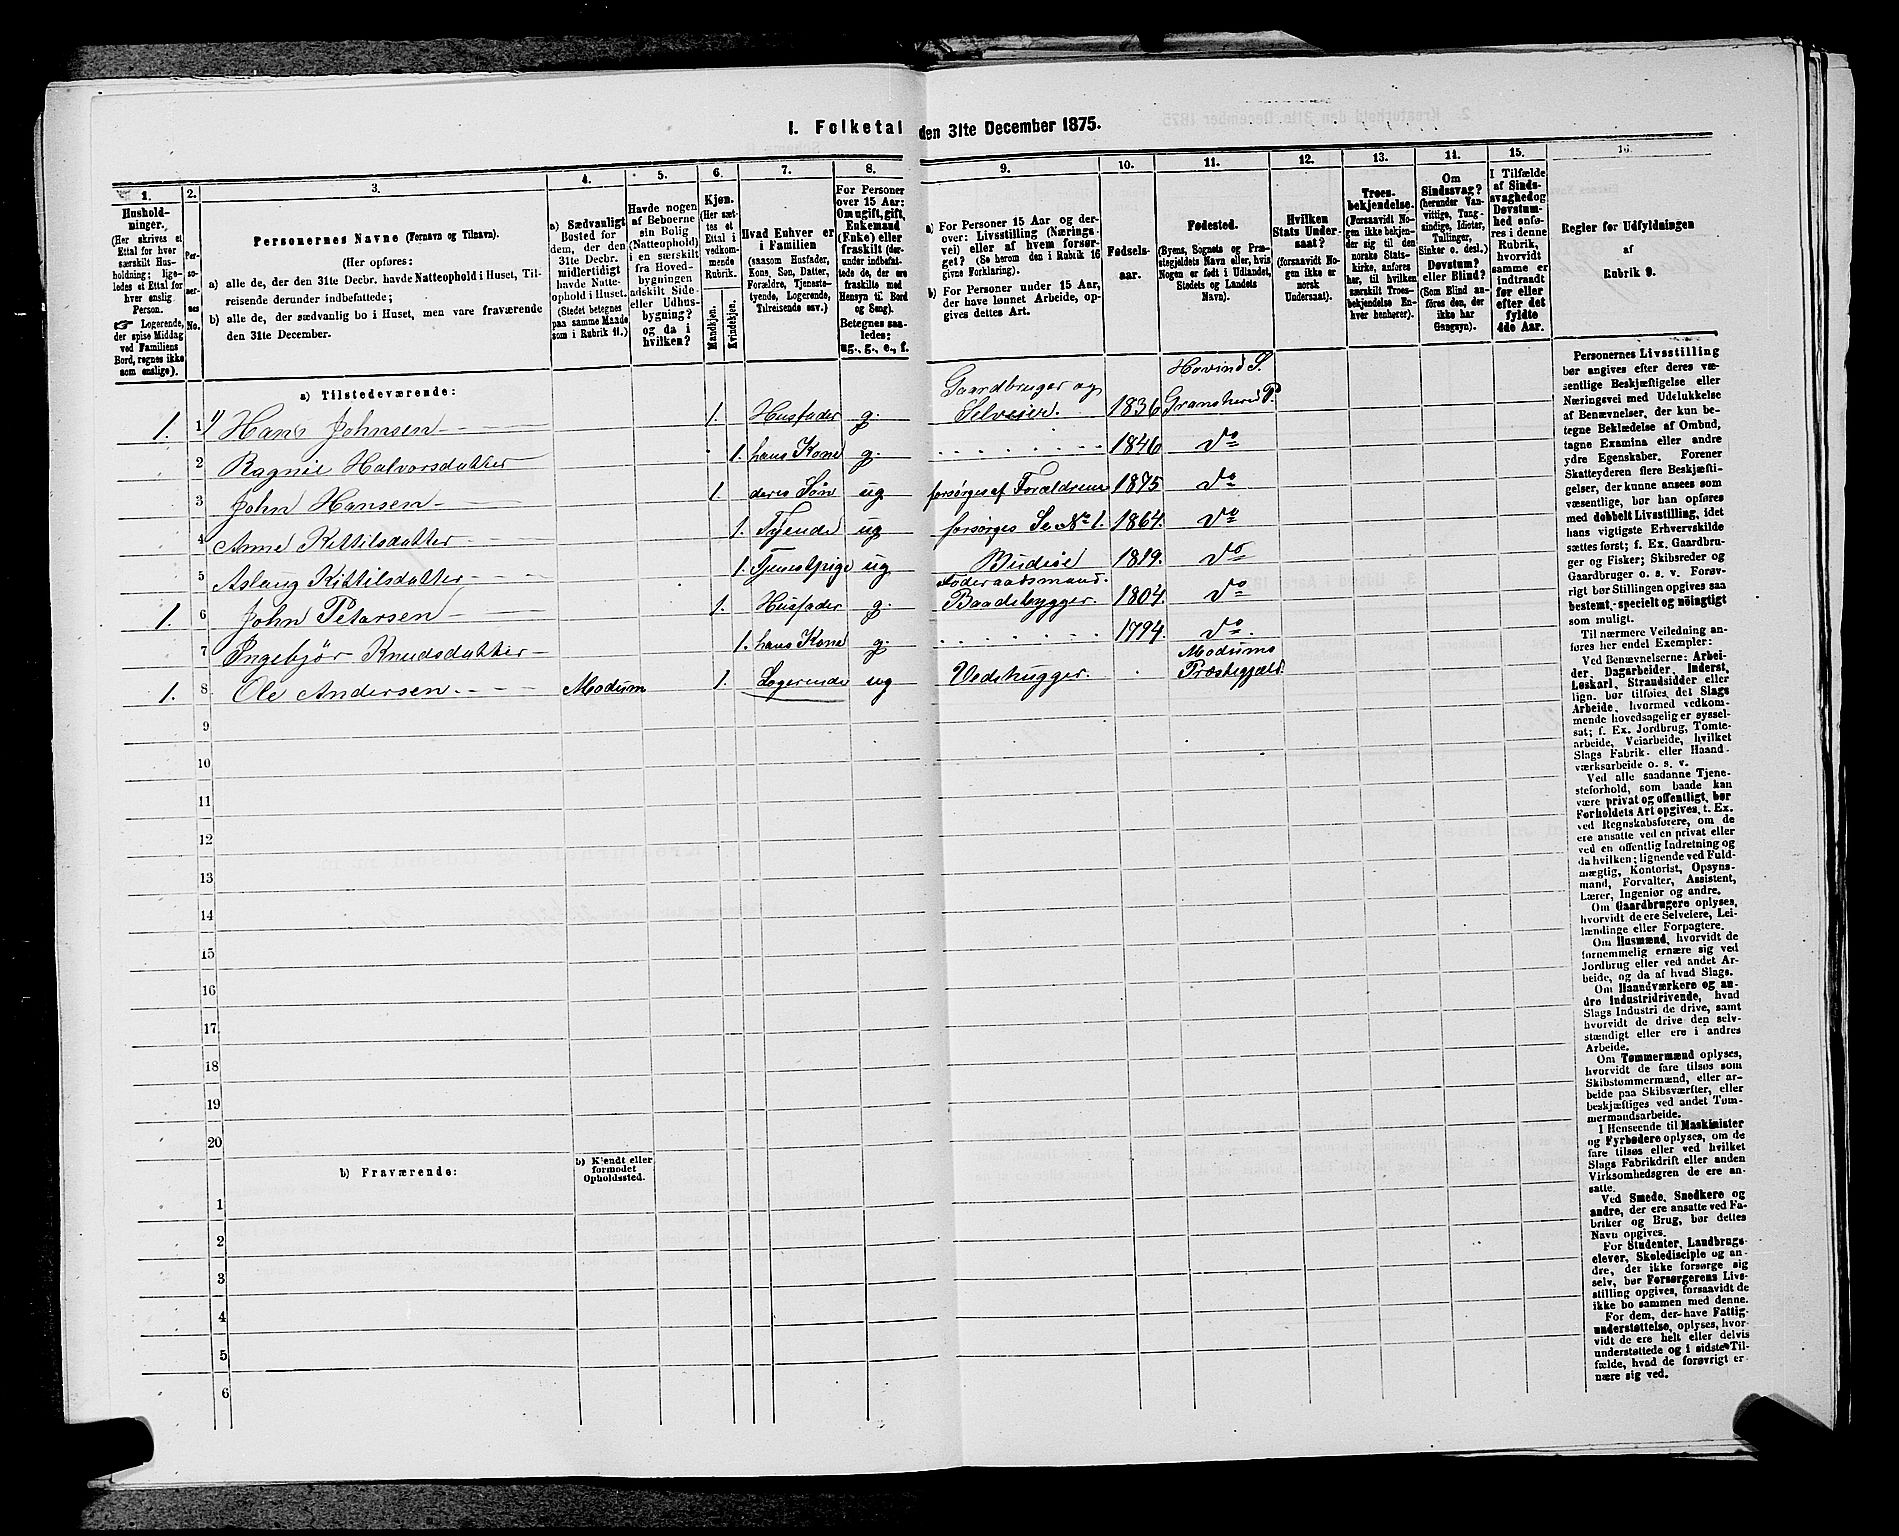 I. Folketal den 31te December 1875.
1. 2. 3. 4. 5. 6. 7. 8. 9. 10. 11. 12. 13. 14. 15. 16.
Hushold-
ninger.
(Her skrives et
Ettal for hver
særskilt Hus-
holdning; lige-
ledes et Ettal for
hver enslig
Person.
☞ Logerende,
der spise Middag
ved Familiens
Bord, regnes ikke
som enslige).
Per-
so-
ner-
nes
No.
Personernes Navne (Fornavn og Tilnavn).
(Her opføres:
a) alle de, der den 31te Decbr. havde Natteophold i Huset, Til-
reisende derunder indbefattede;
b) alle de, der sædvanlig bo i Huset, men vare fraværende
den 31te December.
a) Sædvanligt
Bosted for
dem, der den
31te Decbr.
midlertidigt
havde Natte-
ophold i Huset.
(Stedet betegnes
paa samme Maade
som i Rubrik 11.)
Havde nogen
af Beboerne
sin Bolig
(Natteophold)
i en særskilt
fra Hoved-
bygningen
adskilt Side-
eller Udhus-
bygning?
og da i
hvilken?
Kjøn.
(Her sæt-
tes et
Ettal i
vedkom-
mende
Rubrik.
Mandkjøn.
Kvindekjøn.
Hvad Enhver er
i Familien
(saasom Husfader,
Kone, Søn, Datter,
Forældre, Tjeneste-
tyende, Logerende,
Tilreisende osv.)
For Personer
over 15 Aar:
Om ugift, gift,
Enkemand
(Enke) eller
fraskilt (der-
under indbefat-
tede de, der ere
fraskilte med
Hensyn til Bord
og Seng).
Betegnes saa-
ledes:
ug., g., e., f.
a) For Personer 15 Aar og der-
over: Livsstilling (Nærings-
vei) eller af hvem forsør-
get? (Se herom den i Rubrik 16
givne Forklaring).
b) For Personer under 15 Aar,
der have lønnet Arbeide, op-
gives dettes Art.
Fødsels-
aar.
Fødested.
(Byens, Sognets og Præ-
stegjeldets Navn eller, hvis
Nogen er født i Udlandet,
Stedets og Landets
Navn).
Hvilken
Stats Under-
saat?
(forsaavidt No-
gen ikke er
norsk
Undersaat).
Troes-
bekjendelse.
(Forsaavidt No-
gen ikke bekjen-
der sig til den
norske Stats-
kirke, anføres
her, til hvilken
særskilt Troes-
bekjendelse En-
hver henhører).
Om
Sindssvag?
(herunder Van-
vittige, Tung-
sindige, Idioter,
Tullinger,
Sinker o. desl.)
Døvstum?
eller Blind?
(Som Blind an-
føres den, der
ikke har
Gangsyn).
I Tilfælde
af Sinds-
svaghed og
Døvstum-
hed anfø-
res i denne
Rubrik,
hvorvidt
samme er
indtraadt
før eller
efter det
fyldte
4de Aar.
Regler for Udfyldningen
af
Rubrik 9.
a) Tilstedeværende:
1. 1 1) Hans Johnsen 1. Husfader g. Gaardbruger og Selveier. 1836 Hovind S. Gransherred P.
2 Ragnil Halvorsdatter 1. hans Kone g. 1846 Do
3 John Hansen 1. deres Søn ug forsørges af Forældrene 1875 Do
4 Anne Kittilsdatter 1. Tyende ug forsørges Se No 1. 1864. Do
5 Aslaug Kittilsdatter 1. Tjenestpige ug Budeie 1819. Do
1. 6 John Petersen 1. Husfader g. Foderaadsmand. Baadebygger. 1804. Do
7 Ingebjør Knudsdatter 1. hans Kone g. 1794. Do.
1. 8 Ole Andersen. Modum 1. Logerende ug Vedhugger. Modums Præstegjæld
9
10
11
12
13
14
15
16
17
18
19
20
b) Fraværende:
b) Kjendt eller
formodet
Opholdssted.
1
2
3
4
5
6
Personernes Livsstilling
bør angives efter deres væ-
sentlige Beskjæftigelse eller
Næringsvei med Udelukkelse
af Benævnelser, der kun be-
tegne Beklædelse af Ombud,
tagne Examina eller andre
ydre Egenskaber. Forener
Skatteyderen flere Beskjæfti-
gelser, der kunne ansees som
væsentlige, bør han opføres
med dobbelt Livsstilling, idet
hans vigtigste Erhvervskilde
sættes først; f. Ex. Gaardbru-
ger og Fisker; Skibsreder og
Gaardbruger o. s. v. Forøv-
rigt bør Stillingen opgives saa
bestemt, specielt og nöiagtigt
som muligt.
Til nærmere Veiledning an-
føres her endel Exempler:
Ved Benævnelserne: Arbei-
der, Dagarbeider, Inderst,
Løskarl, Strandsidder eller
lign. bør tilføies det Slags
Arbeide, hvormed vedkom-
mende hovedsagelig er syssel-
sat; f. Ex. Jordbrug, Tomte-
arbeide, Veiarbeide, hvilket
Slags Fabrik- eller Haand-
værksarbeide o. s. v.
Ved alle saadanne Tjene-
steforhold, som baade kan
være privat og offentligt, bør
Forholdets Art opgives, f. Ex.
ved Regnskabsførere, om de
ere ansatte ved en privat eller
ved en offentlig Indretning og
da hvilken; lignende ved Fuld-
mægtig, Kontorist, Opsyns-
mand, Forvalter, Assistent,
Lærer, Ingeniør og andre.
Om Gaardbrugere oplyses,
hvorvidt de ere Selveiere, Lei-
lændinge eller Forpagtere.
Om Husmænd, hvorvidt de
fornemmelig ernære sig ved
Jordbrug eller ved andet Ar-
beide, og da af hvad Slags.
Om Haandværkere og an-
dre Industridrivende, hvad
Slags Industri de drive, samt
hvorvidt de drive den selv-
stændigt eller ere i andres
Arbeide.
Om Tømmermænd oplyses,
hvorvidt de fare tilsøs som
Skibstømmermænd, eller ar-
beide paa Skibsværfter, eller
beskjæftiges ved andet Tøm-
mermandsarbeide.
I Henseende til Maskinister
og Fyrbødere oplyses, om de
fare tilsøs eller ved hvilket
Slags Fabrikdrift eller anden
Virksomhedsgren de ere an-
satte.
Ved Smede, Snedkere og
andre, der ere ansatte ved Fa-
briker og Brug, bør dettes
Navn opgives.
For Studenter, Landbrugs-
elever, Skoledisciple og an-
dre, der ikke forsørge sig
selv, bør Forsørgerens Livs-
stilling opgives, forsaavidt de
ikke bo sammen med denne.
For dem, der have Fattig-
understøttelse, oplyses, hvor-
vidt de ere helt eller delvis
understøttede og i sidste Til-
fælde, hvad de forøvrigt er-
nære sig ved.